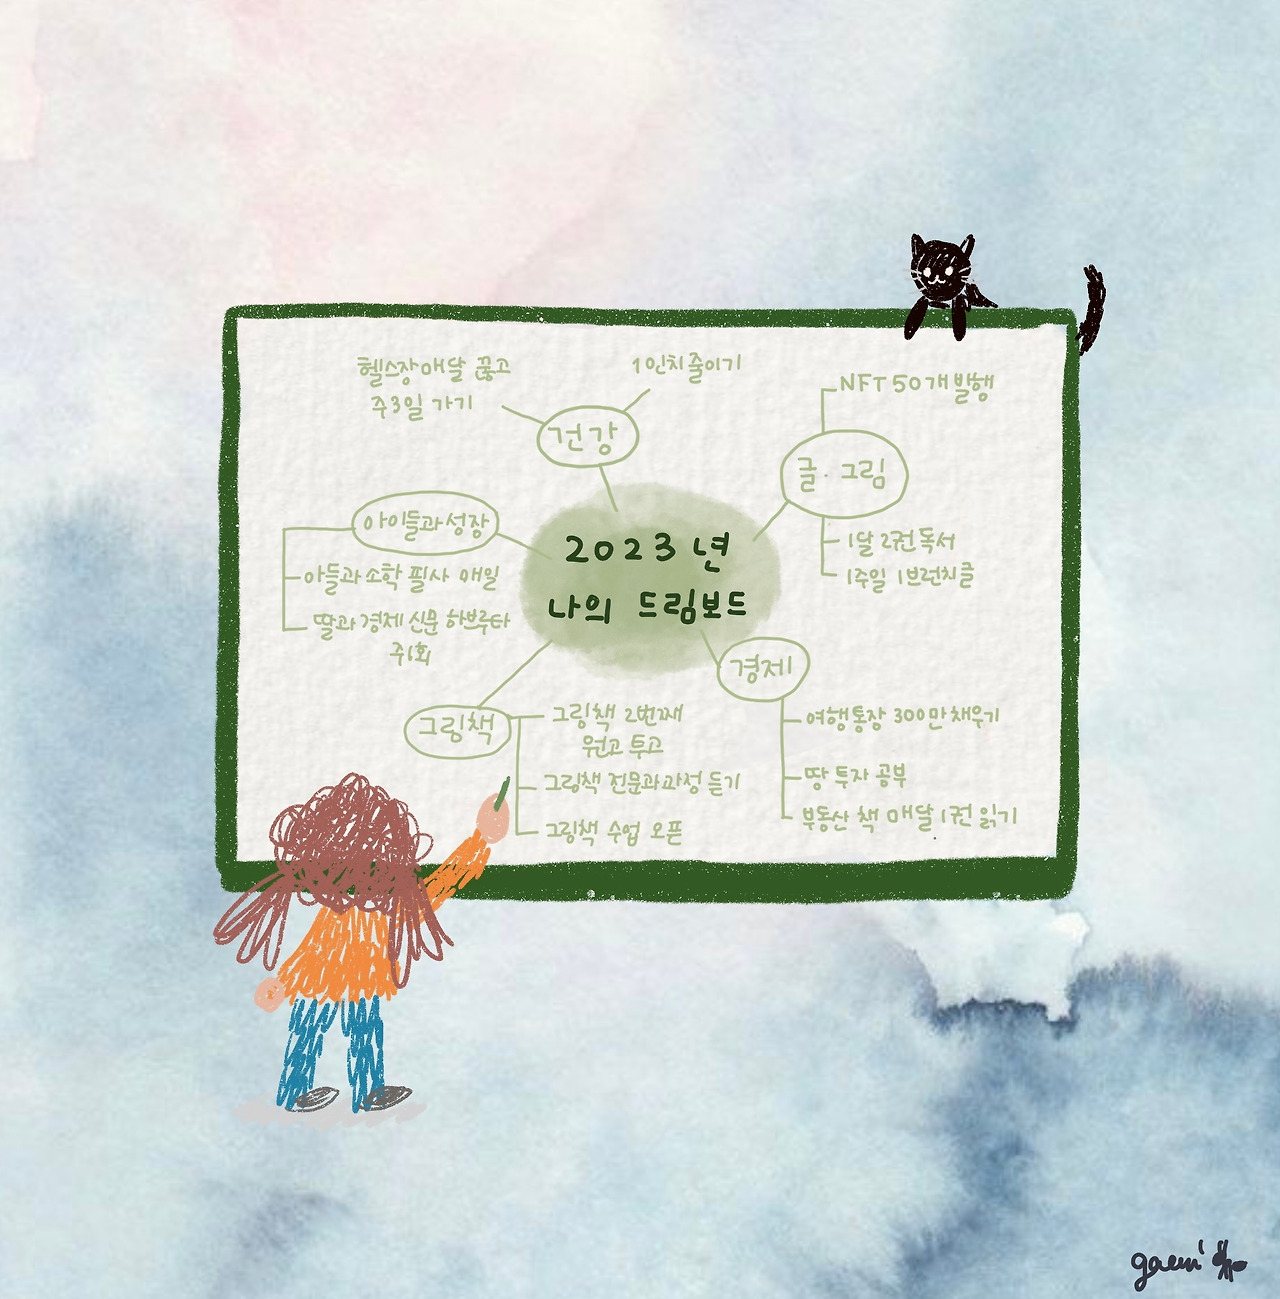 2023년
나의 드림보드
건강
헬스장 매달 끊고
주3일 가기
1인치 줄이기
글·그림
NFT 50개 발행
1달 2권 독서
1주일 1브런치글
경제
여행통장 300만 채우기
땅 투자 공부
부동산 책 매달 1권 읽기
그림책
그림책 2번째
원고 투고
그림책 전문과과정 듣기
그림책 수업 오픈
아이들과 성장
아들과 소학 필사 매일
딸과 경제 신문 하브루타
주1회